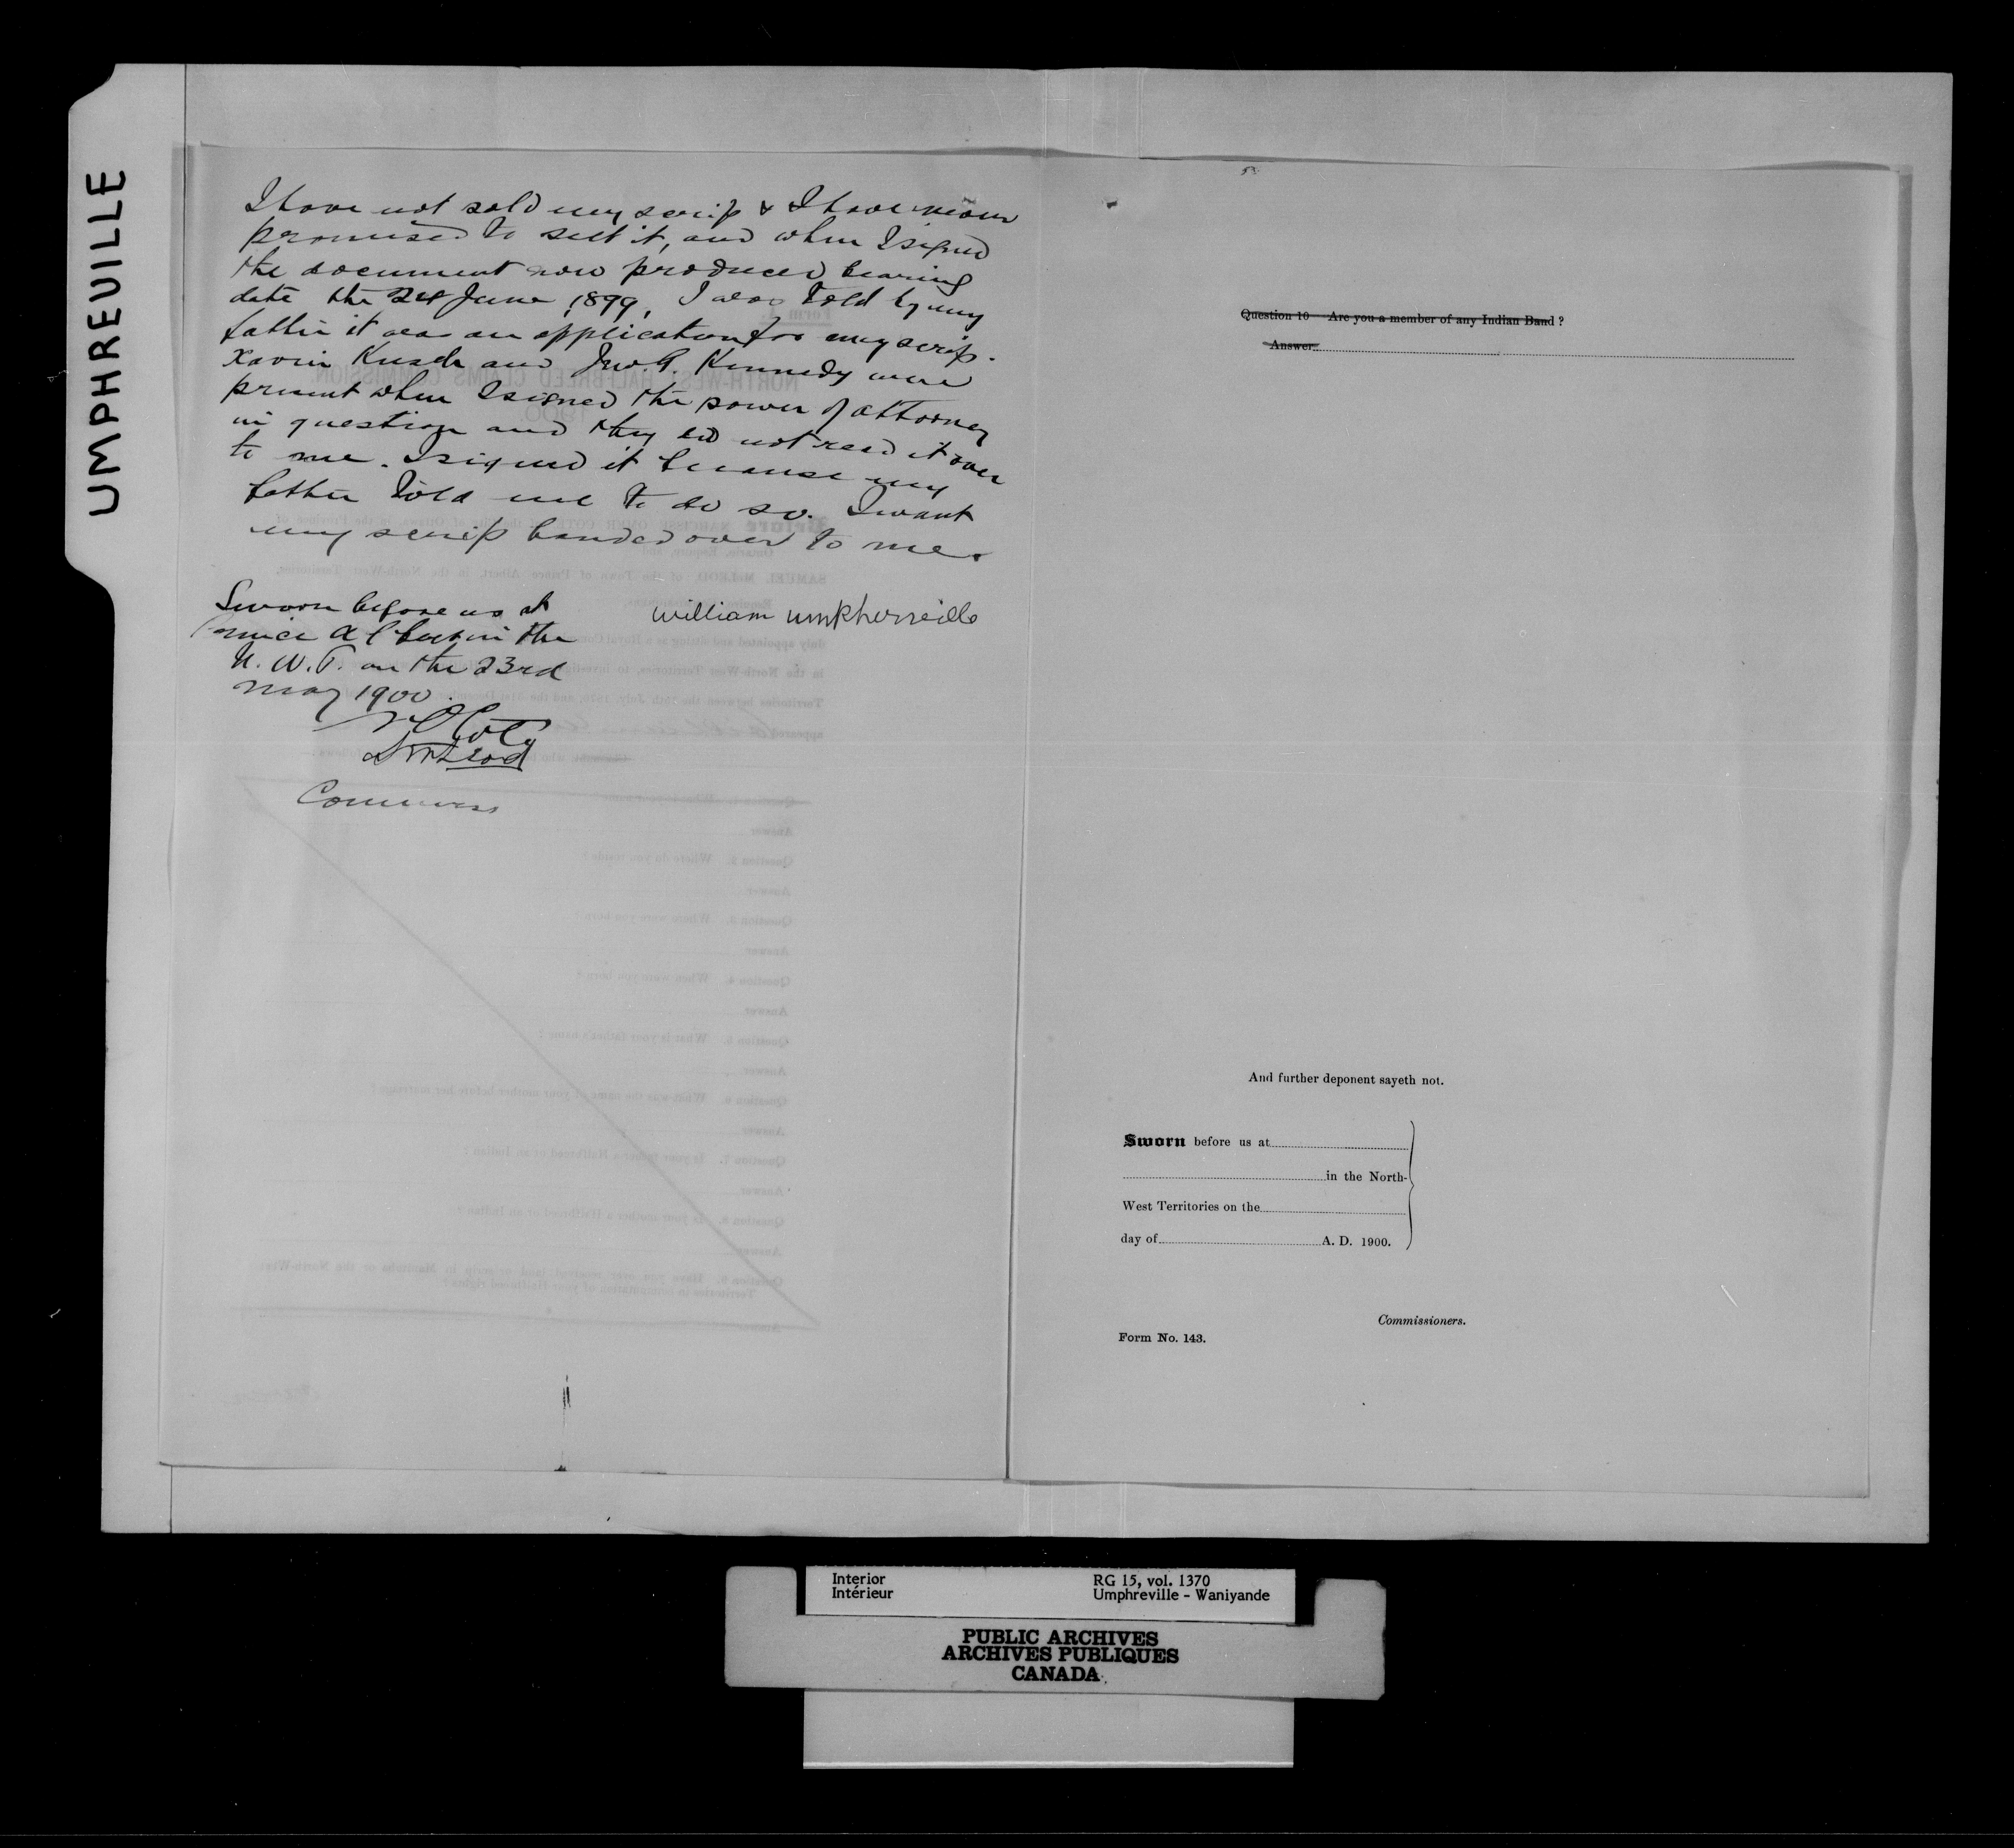 UMPHREVILLE
I have not sold my scrip & I have never
promised to sell it, and when I signed
the document now produced bearing
date the 24 June 1899, I was told by my
father it was an application for my scrip.
Xavier and Jno. P. Kennedy were
present when I signed the power of attorney
in question and they did not read it over
to me. I signed it because my
father told me to do so. I want
my scrip handed over to me.
Sworn before us at
Prince Albert in the
N. W. T. on the 23rd
May 1900.
william umpherville
Coté
McLeod
Question 10 Are you a member of any Indian Band ?
Answer
And further deponent sayeth not.
Sworn before us at
in the North-
West Territories on the
day of A. D. 1900.
Commissioners.
Form No. 143.
Interior
Intérieur
RG 15, vol. 1370
Umphreville - Waniyande
PUBLIC ARCHIVES
ARCHIVES PUBLIQUES
CANADA